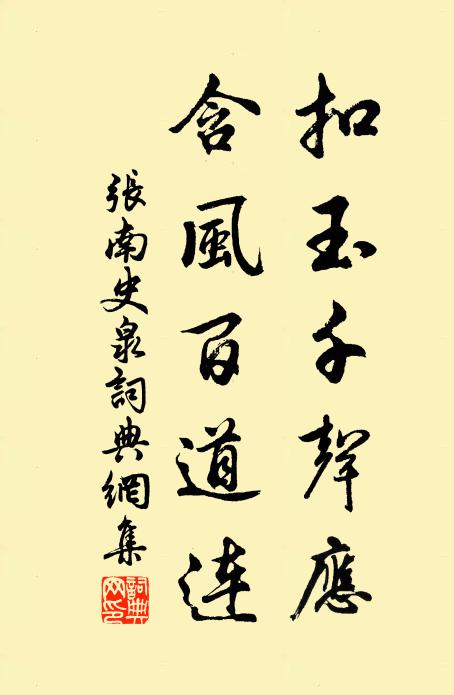 扣玉千聲應
含風百道連
張南史泉詞典網集
詞典网印